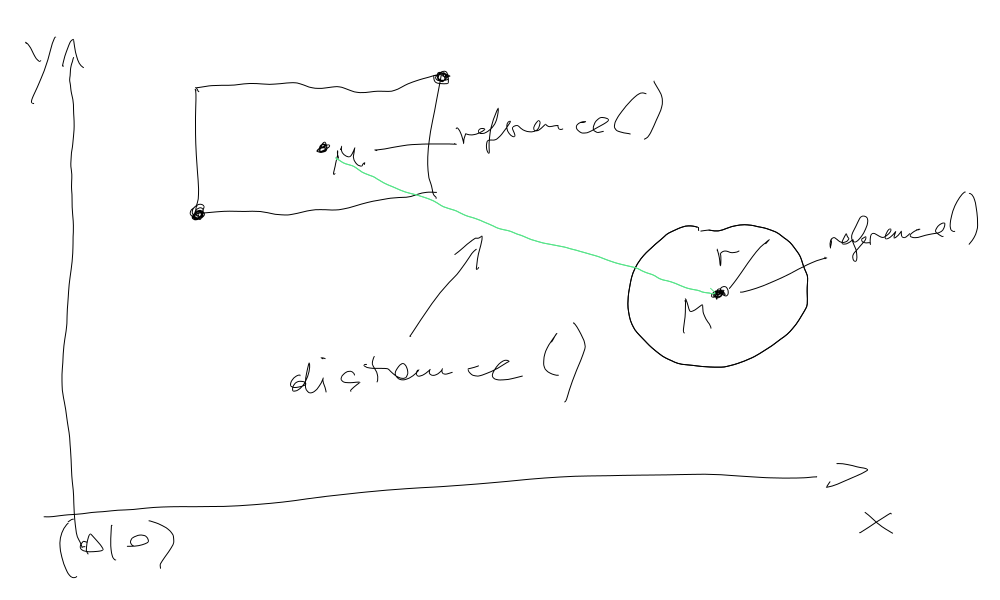 Y
reference()
M
reference()
r
M
distance()
X
(0|0)